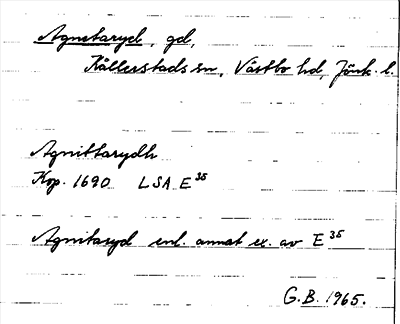 Agnetaryd, gd,
Kållerstads sn, Västbo hd, Jönk. l.
Agnittarydh
Kop. 1690 LSA E 35
Agnitaryd enl. annat ex. av E 35
G.B. 1965.